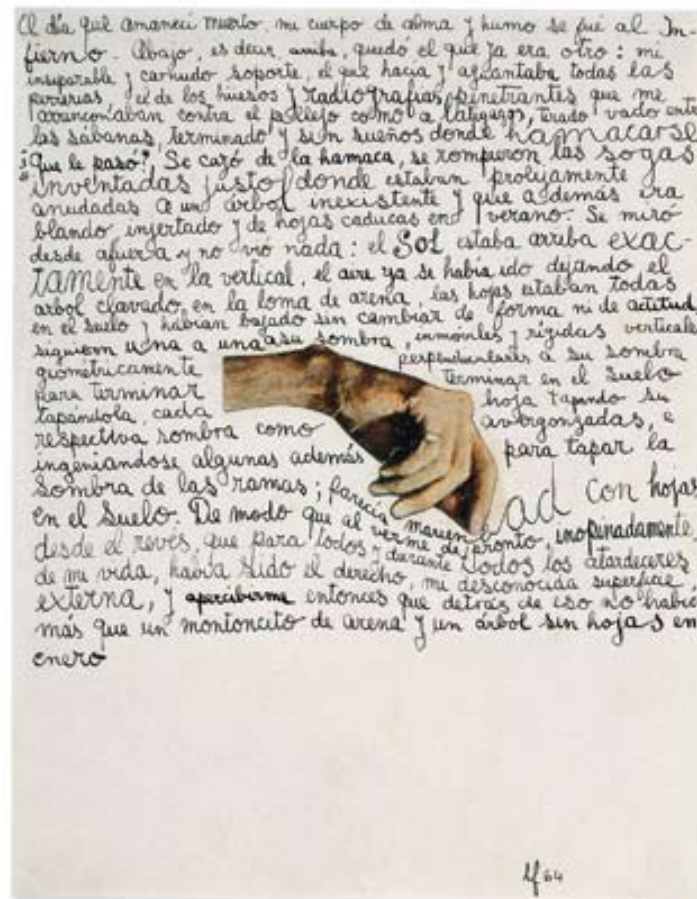 El día que amanecí muerto, mi cuerpo de alma y humo se fué al In-
fierno. Abajo, es decir arriba, quedó el que ya era otro: mi
inseparable y carnudo soporte, el que hacía y aguantaba todas las
perrerías, el de los huesos y radiografías penetrantes que me
arrinconaban contra el pellejo como a latigazos, tirado vado entre
las sábanas, terminado y sin sueños donde hamacarse
¿Que le pasó? Se cayó de la hamaca, se rompieron las sogas
inventadas justo donde estaban prolijamente
anudadas a un árbol inexistente y que además era
blando injertado y de hojas caducas en verano. Se miró
desde afuera y no vió nada: el Sol estaba arriba exac-
tamente en la vertical, el aire ya se había ido dejando el
arbol clavado en la loma de arena, las hojas estaban todas
en el suelo y habían bajado sin cambiar de forma ni de actitud
siguiendo una a una a su sombra, inmóviles y rígidas verticales
geometricamente perpendiculares a su sombra
para terminar terminar en el suelo
tapándola, cada hoja tapando su
respectiva sombra como avergonzadas, e
ingeniandose algunas además para tapar la
sombra de las ramas; parecía con hojas
en el suelo. De modo que al verme de pronto, inopinadamente,
desde el revés, que para todos y durante todos los atardeceres
de mi vida, había sido el derecho, mi desconocida superficie
externa, y apercibirme entonces que detrás de eso no había
más que un montoncito de arena y un árbol sin hojas en
enero
lf 64